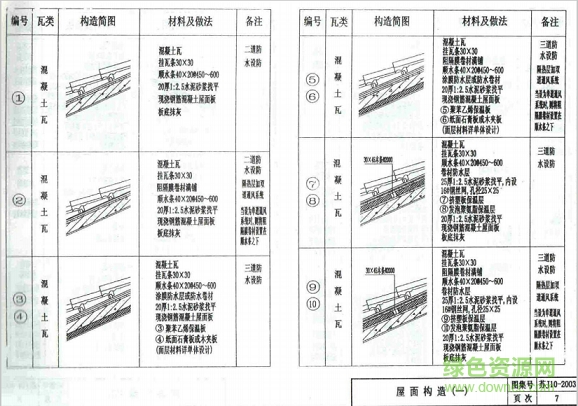 编号 瓦类 构造简图 材料及做法 备注
① 混凝土瓦
混凝土瓦
挂瓦条30×30
顺水条40×20@450~600
20厚1:2.5水泥砂浆找平
现浇钢筋混凝土屋面板
板底抹灰
二道防
水设防
② 混凝土瓦
混凝土瓦
挂瓦条30×30
阻隔膜卷材满铺
顺水条40×20@450~600
20厚1:2.5水泥砂浆找平
现浇钢筋混凝土屋面板
板底抹灰
二道防
水设防
隔热层加双
道通风系统
当设为单道通风
系统时,则阻隔
隔膜卷材设置在
顺水条之下
③ ④ 混凝土瓦
混凝土瓦
挂瓦条30×30
顺水条40×20@450~600
涂膜防水层或防水卷材
20厚1:2.5水泥砂浆找平
现浇钢筋混凝土屋面板
③聚苯乙烯保温板
④纸面石膏板或木夹板
(面层材料详单体设计)
三道防
水设防
编号 瓦类 构造简图 材料及做法 备注
⑤ ⑥ 混凝土瓦
混凝土瓦
挂瓦条30×30
阻隔膜卷材满铺
顺水条40×20@450~600
涂膜防水层或防水层
20厚1:2.5水泥砂浆找平
现浇钢筋混凝土屋面板
⑤聚苯乙烯保温板
⑥纸面石膏板或木夹板
(面层材料详单体设计)
三道防
水设防
隔热层加双
道通风系统
顺水条之下
⑦ ⑧ 混凝土瓦
混凝土瓦
挂瓦条30×30
顺水条40×20@450~600
卷材防水层
25厚1:2.5水泥砂浆找平,内设
16#钢丝网,孔径25×25
⑦挤塑板保温层
⑧发泡聚氨脂保温层
20厚1:2.5水泥砂浆找平
现浇钢筋混凝土屋面板
板底抹灰
三道防
水设防
⑨ ⑩ 混凝土瓦
混凝土瓦
挂瓦条30×30
顺水条40×20@450~600
阻隔膜卷材满铺
卷材防水层
25厚1:2.5水泥砂浆找平,内设
16#钢丝网,孔径25×25
⑨挤塑板保温层
⑩发泡聚氨脂保温层
20厚1:2.5水泥砂浆找平
现浇钢筋混凝土屋面板
板底抹灰
三道防
水设防
隔热层加双
道通风系统
顺水条之下
屋面构造(一) 图集号 苏J10-2003
页次 7
绿色资源网